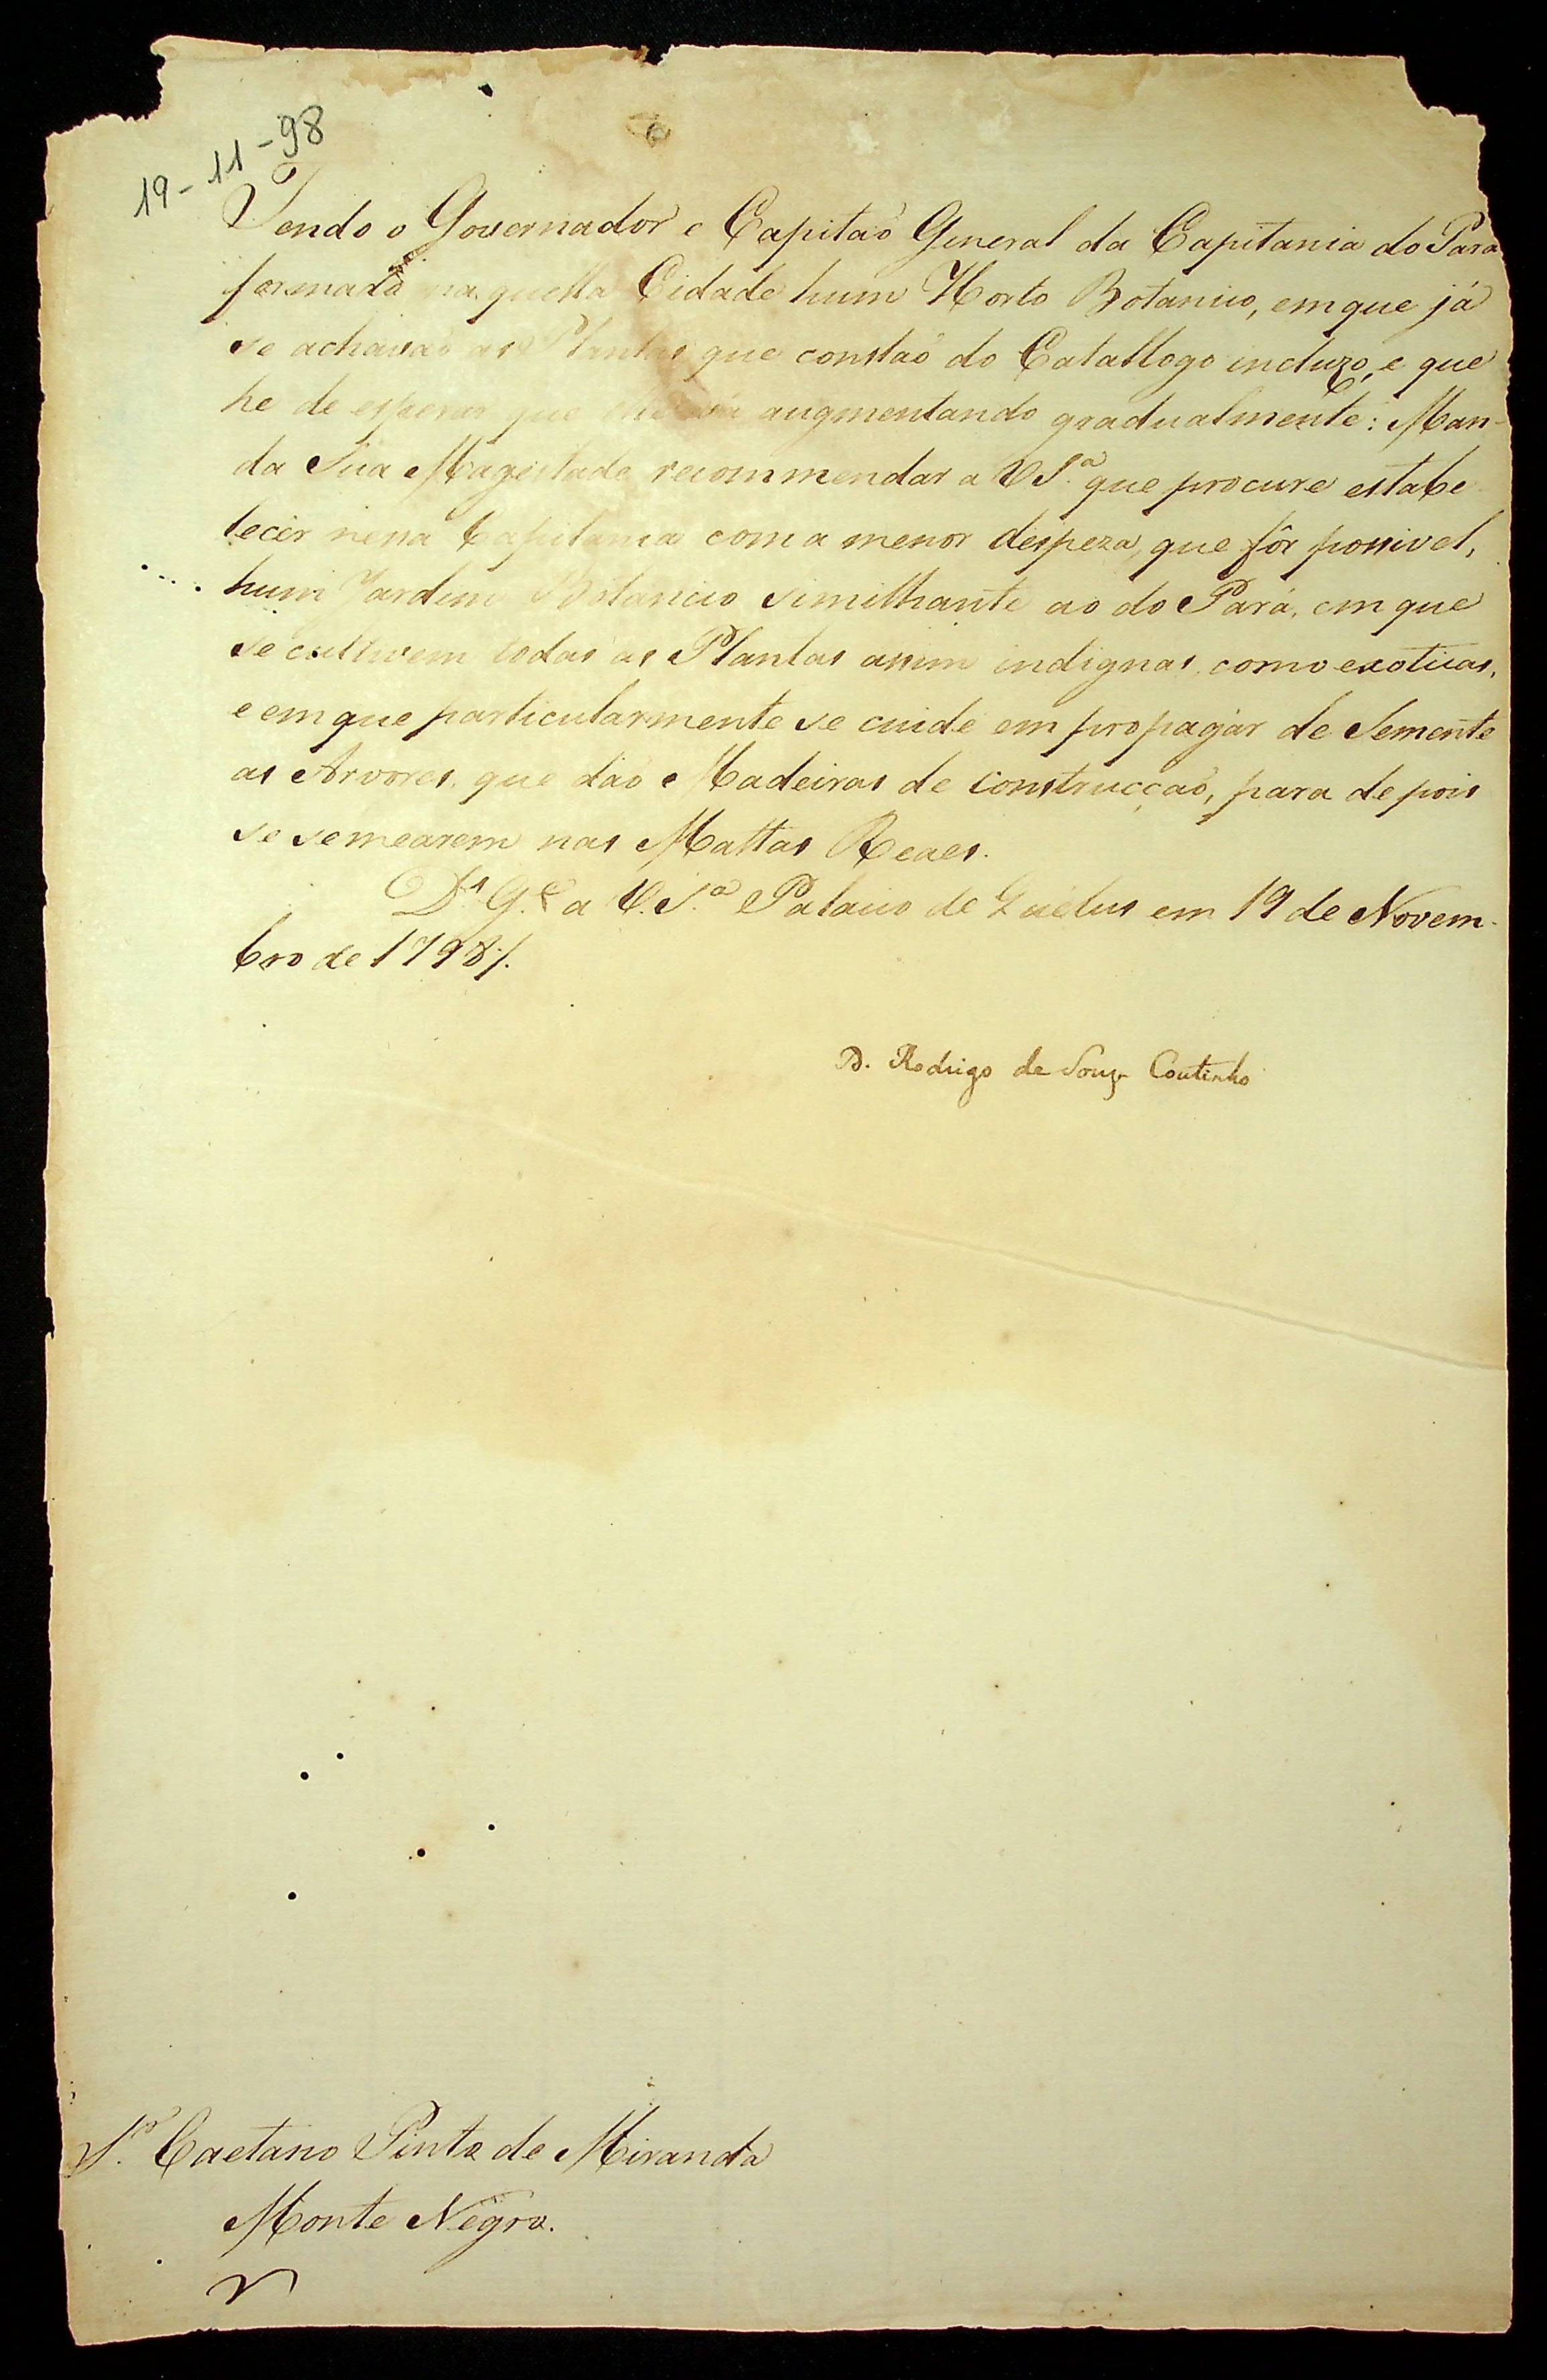 19-11-98
Tendo o Governador e Capitaõ General da Capitania do Pará
formado naquella Cidade hum Horto Botanico, em que já
se achavaõ as Plantas que constaõ do Catallogo incluzo, e que
he de esperar que augmentando gradualmente: Man-
da Sua Magestade recommendar a V S.ª que procure estabe-
lecer nessa Capitania com a menor despeza, que fôr possivel,
hum Jardim Botanico similhante ao do Pará, em que
se cultivem todas as Plantas assim indignas, como exoticas,
e em que particularmente se cuide em propagar de Semente
as Arvores, que daõ Madeiras de construcçaõ, para depois
se semearem nas Mattas Reaes.
D.s G.e a V. S.ª Palacio de Quélus em 19 de Novem-
bro de 1798/.
D. Rodrigo de Souza Coutinho
S.r Caetano Pinto de Miranda
Monte Negro.